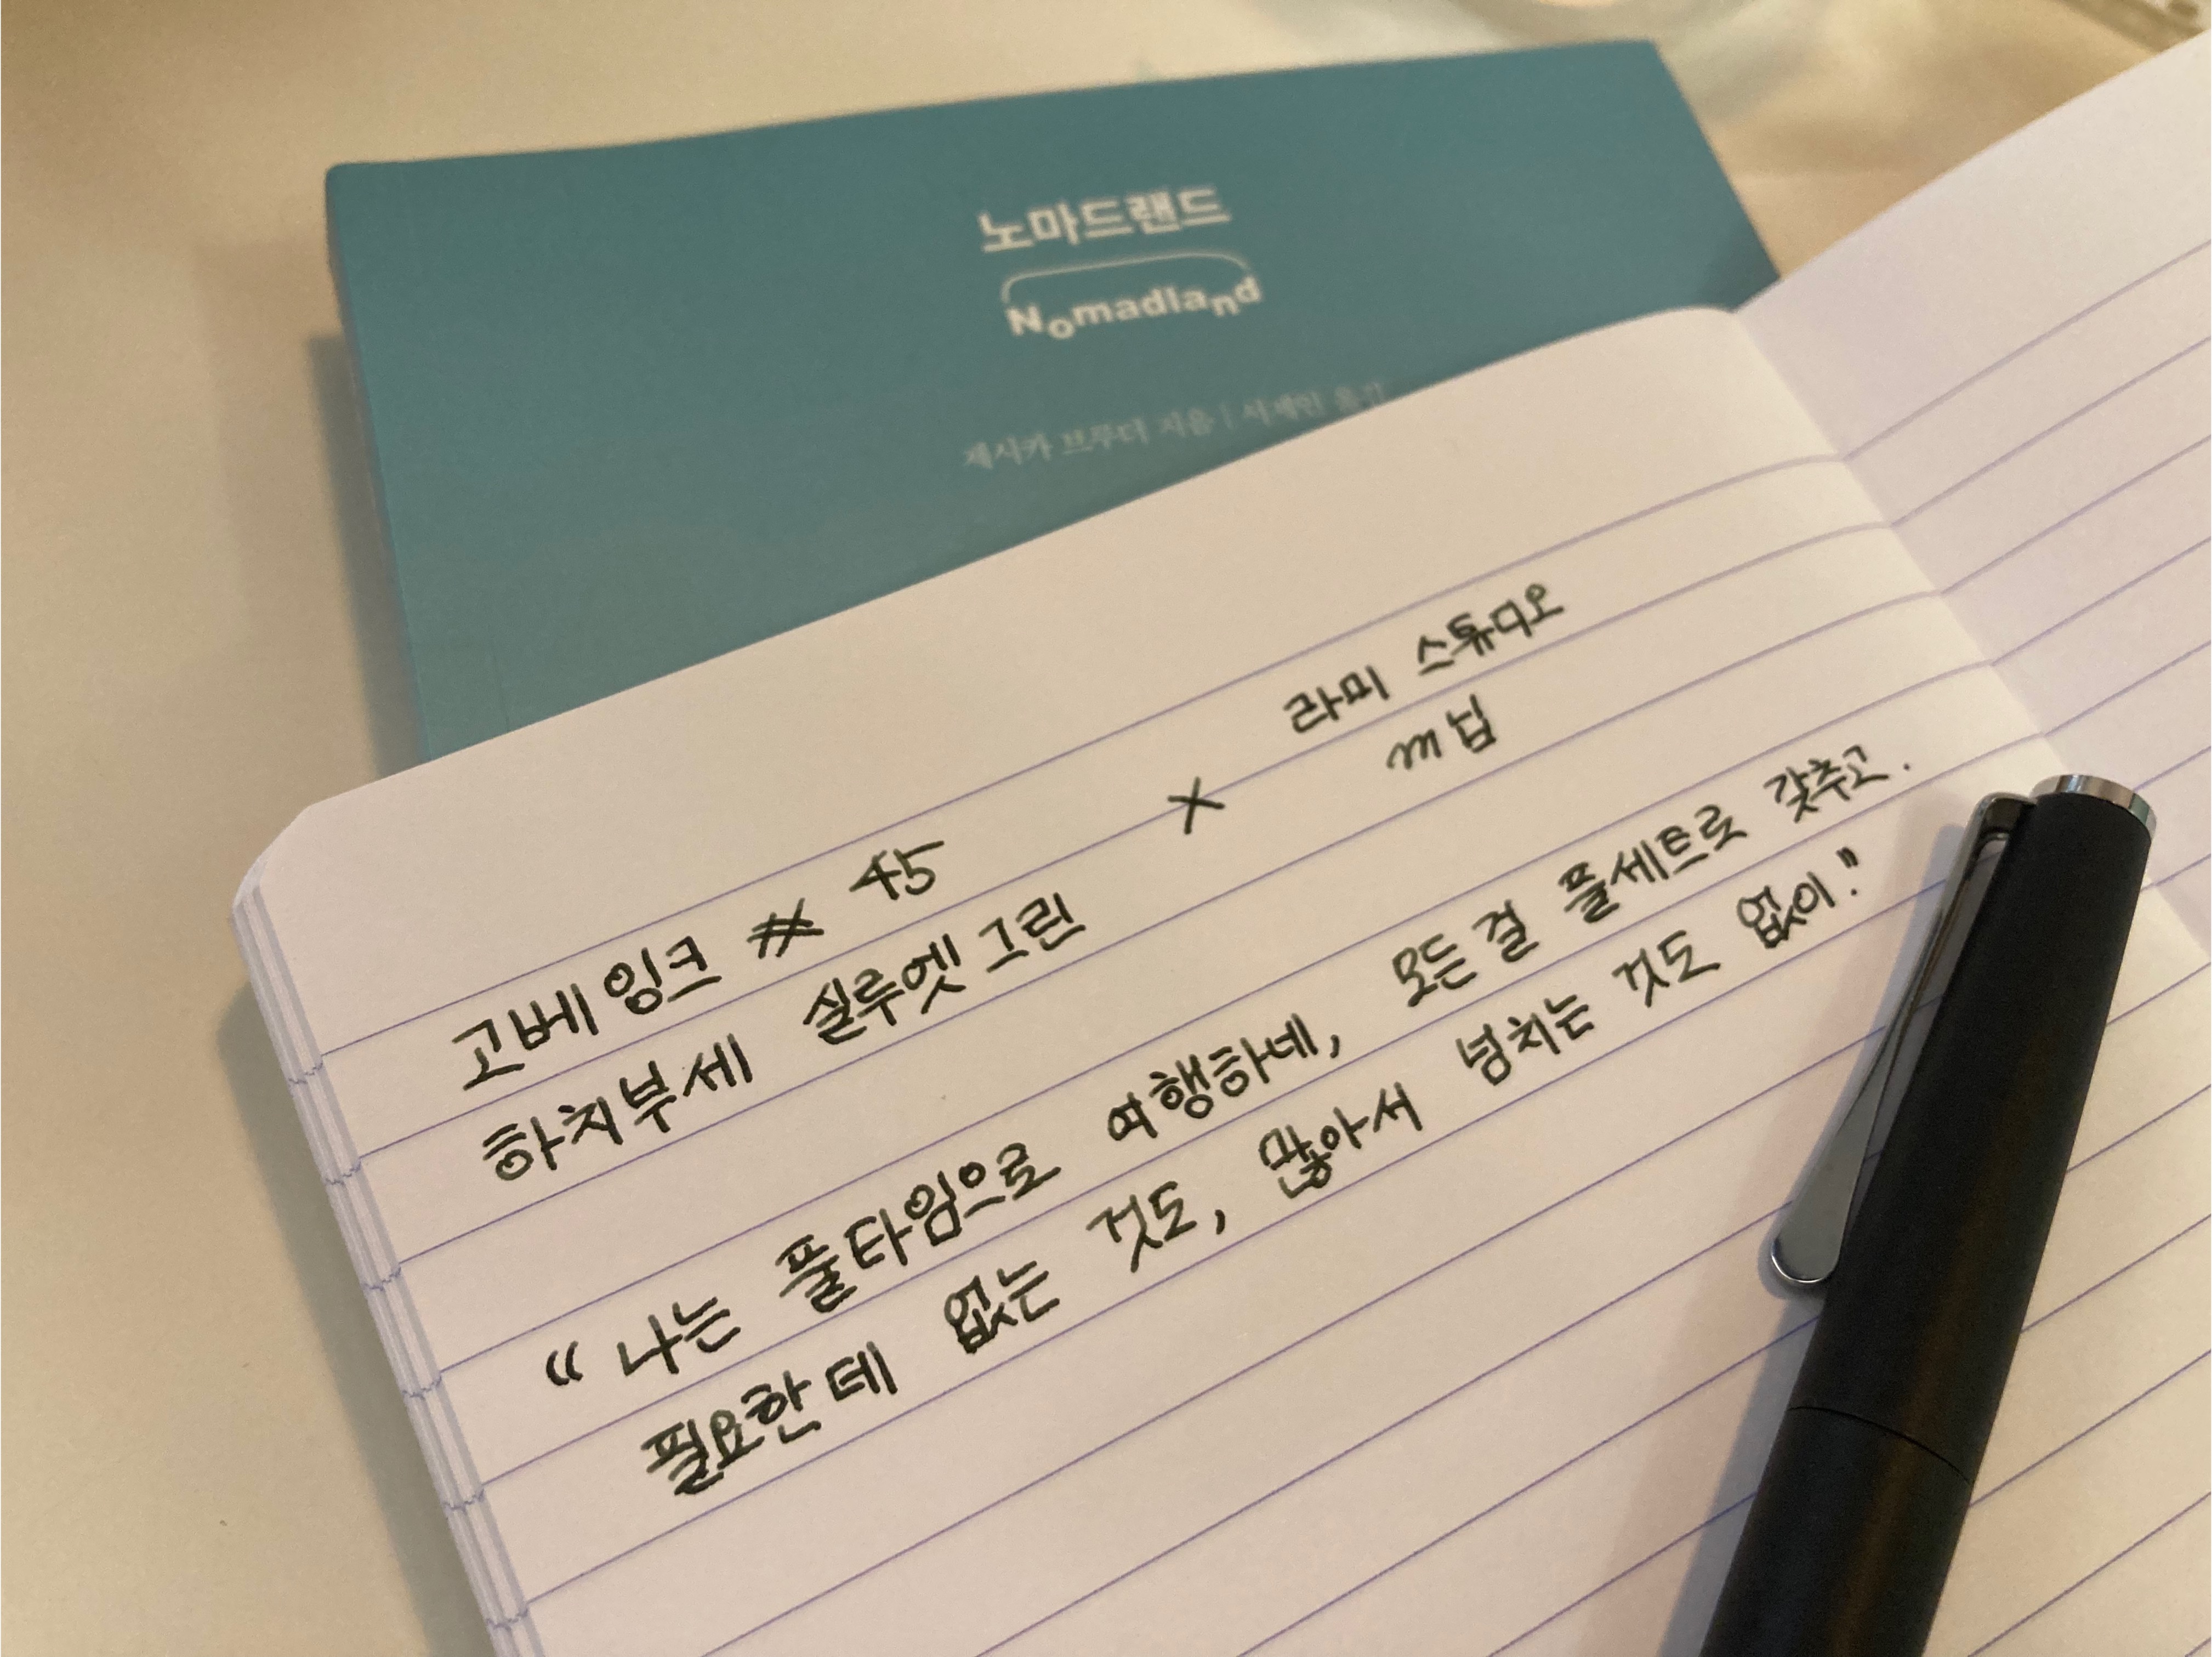 노마드랜드
Nomadland
제시카 브루더 지음 | 서제인 옮김
고베 잉크 # 45
하치부세 실루엣 그린
×
라미 스튜디오
m 닙
“나는 풀타임으로 여행하네, 모든 걸 풀세트로 갖추고.
필요한데 없는 것도, 많아서 넘치는 것도 없이."